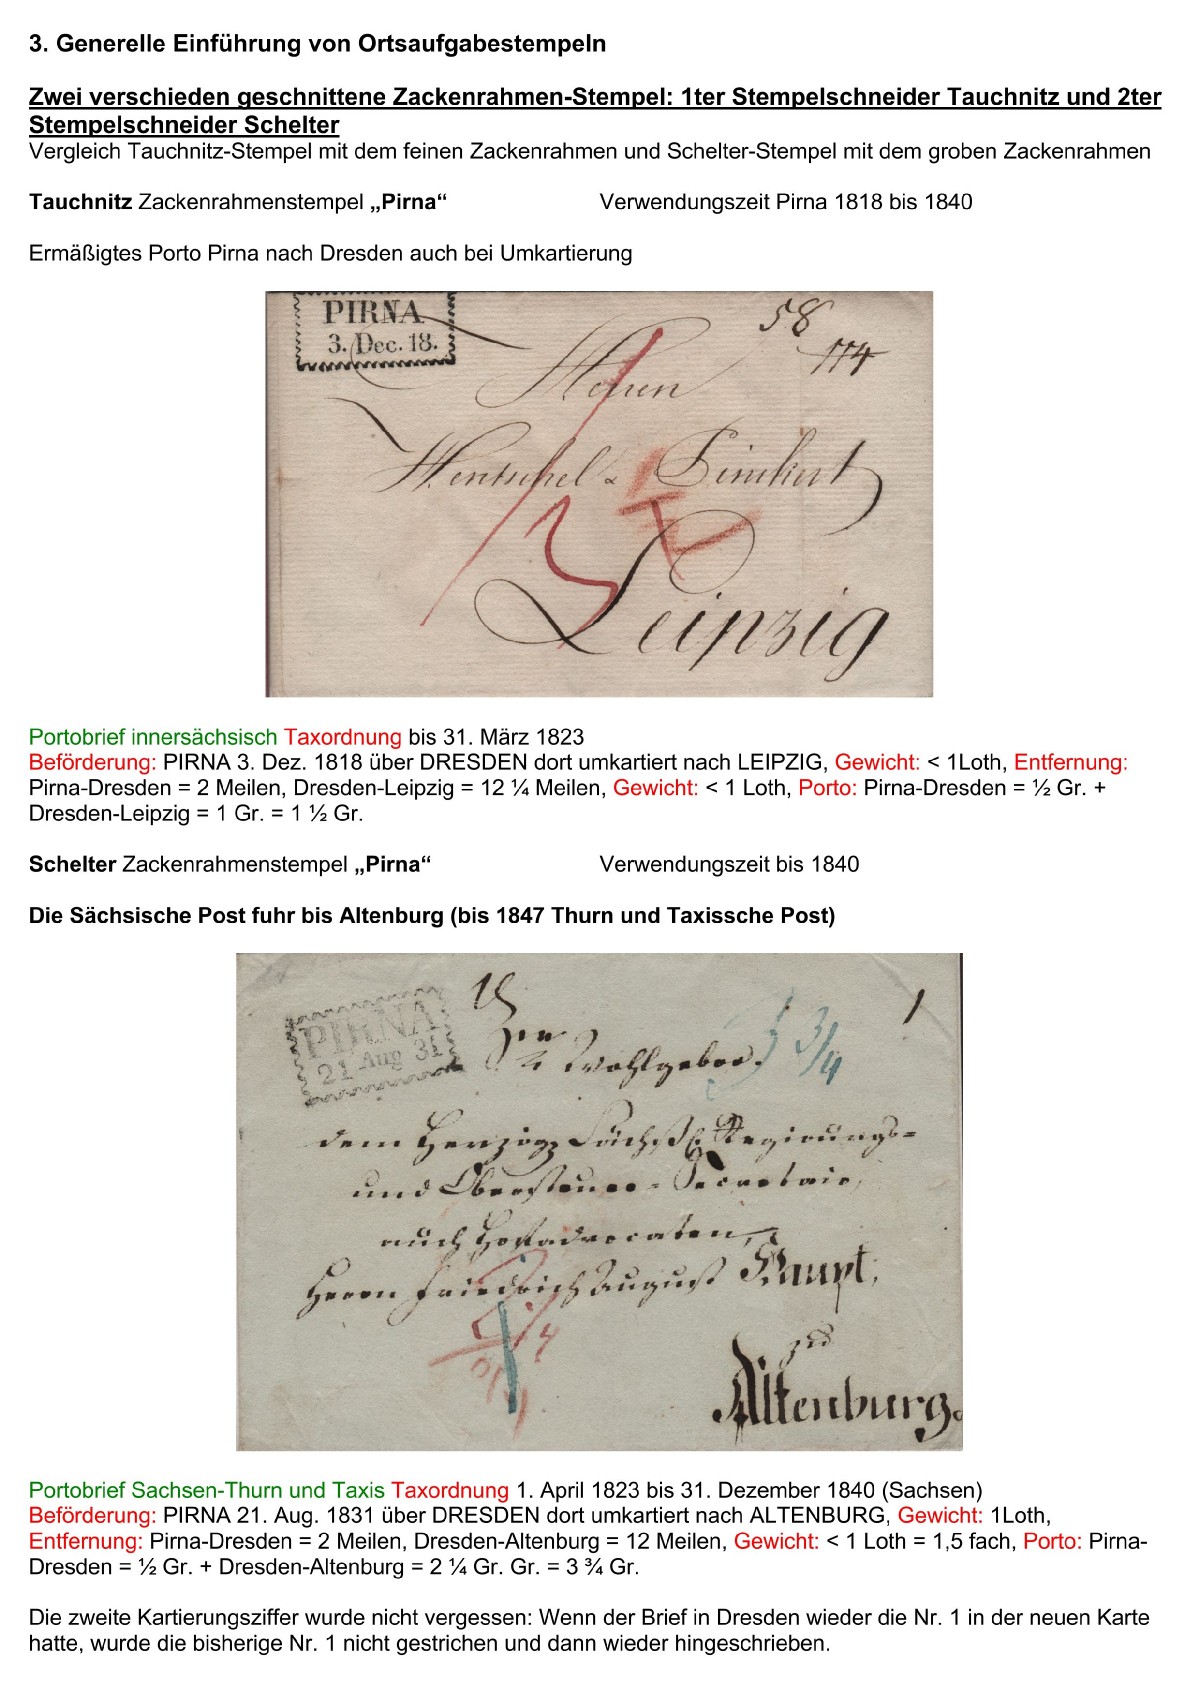 3. Generelle Einführung von Ortsaufgabestempeln
Zwei verschieden geschnittene Zackenrahmen-Stempel: 1ter Stempelschneider Tauchnitz und 2ter
Stempelschneider Schelter
Vergleich Tauchnitz-Stempel mit dem feinen Zackenrahmen und Schelter-Stempel mit dem groben Zackenrahmen
Tauchnitz Zackenrahmenstempel „Pirna“ Verwendungszeit Pirna 1818 bis 1840
Ermäßigtes Porto Pirna nach Dresden auch bei Umkartierung
PIRNA
3. Dec. 18.
58
114
Herren
Leipzig
Portobrief innersächsisch Taxordnung bis 31. März 1823
Beförderung: PIRNA 3. Dez. 1818 über DRESDEN dort umkartiert nach LEIPZIG, Gewicht: < 1Loth, Entfernung:
Pirna-Dresden = 2 Meilen, Dresden-Leipzig = 12 ¼ Meilen, Gewicht: < 1 Loth, Porto: Pirna-Dresden = ½ Gr. +
Dresden-Leipzig = 1 Gr. = 1 ½ Gr.
Schelter Zackenrahmenstempel „Pirna“ Verwendungszeit bis 1840
Die Sächsische Post fuhr bis Altenburg (bis 1847 Thurn und Taxissche Post)
PIRNA
21 Aug 31
1
3/4
Wohlgebor.
dem Herzogl. Sächs. Regierungs-
und Obersteuer-Secretair,
auch Hofadvocaten,
Herrn Friedrich August Haupt,
zu
Altenburg.
Portobrief Sachsen-Thurn und Taxis Taxordnung 1. April 1823 bis 31. Dezember 1840 (Sachsen)
Beförderung: PIRNA 21. Aug. 1831 über DRESDEN dort umkartiert nach ALTENBURG, Gewicht: 1Loth,
Entfernung: Pirna-Dresden = 2 Meilen, Dresden-Altenburg = 12 Meilen, Gewicht: < 1 Loth = 1,5 fach, Porto: Pirna-
Dresden = ½ Gr. + Dresden-Altenburg = 2 ¼ Gr. Gr. = 3 ¾ Gr.
Die zweite Kartierungsziffer wurde nicht vergessen: Wenn der Brief in Dresden wieder die Nr. 1 in der neuen Karte
hatte, wurde die bisherige Nr. 1 nicht gestrichen und dann wieder hingeschrieben.